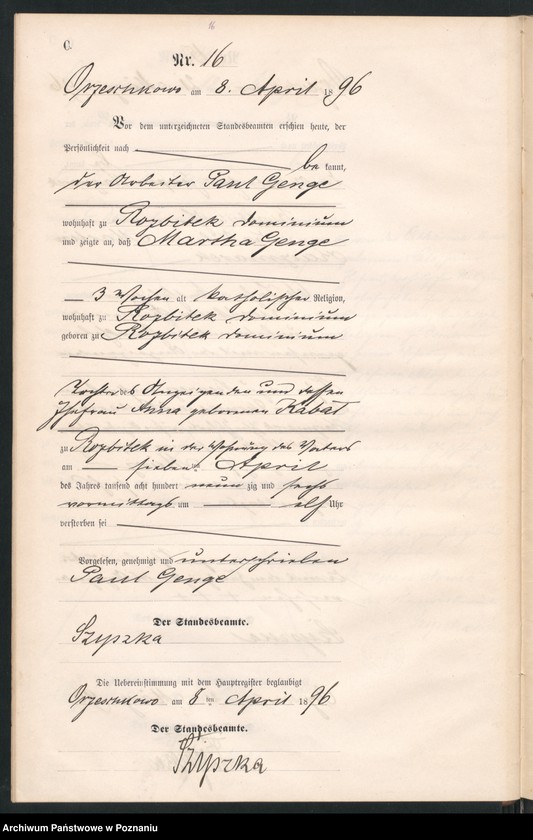 16
C.
Nr. 16
Orzeschkowo am 8. April 1896
Vor dem unterzeichneten Standesbeamten erschien heute, der
Persönlichkeit nach bekannt,
der Arbeiter Paul Genge
wohnhaft zu Rozbitek Dominium
und zeigte an, daß Martha Genge
3 Wochen alt katholischer Religion,
wohnhaft zu Rozbitek Dominium
geboren zu Rozbitek Dominium
Tochter des Anzeigenden und dessen
Ehefrau Anna geborenen Kabat
zu Rozbitek in der Wohnung des Vaters
am sieben April
des Jahres tausend acht hundert neunzig und sechs
vormittags um elf Uhr
verstorben sei
Vorgelesen, genehmigt und unterschrieben
Paul Genge
Der Standesbeamte.
Szypzka
Die Uebereinstimmung mit dem Hauptregister beglaubigt
Orzeschkowo am 8ten April 1896
Der Standesbeamte.
Szypzka
Archiwum Państwowe w Poznaniu